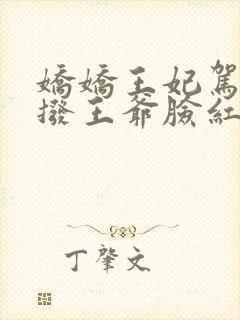 嬌嬌王妃駕
撥王爺臉紅
丁肇文